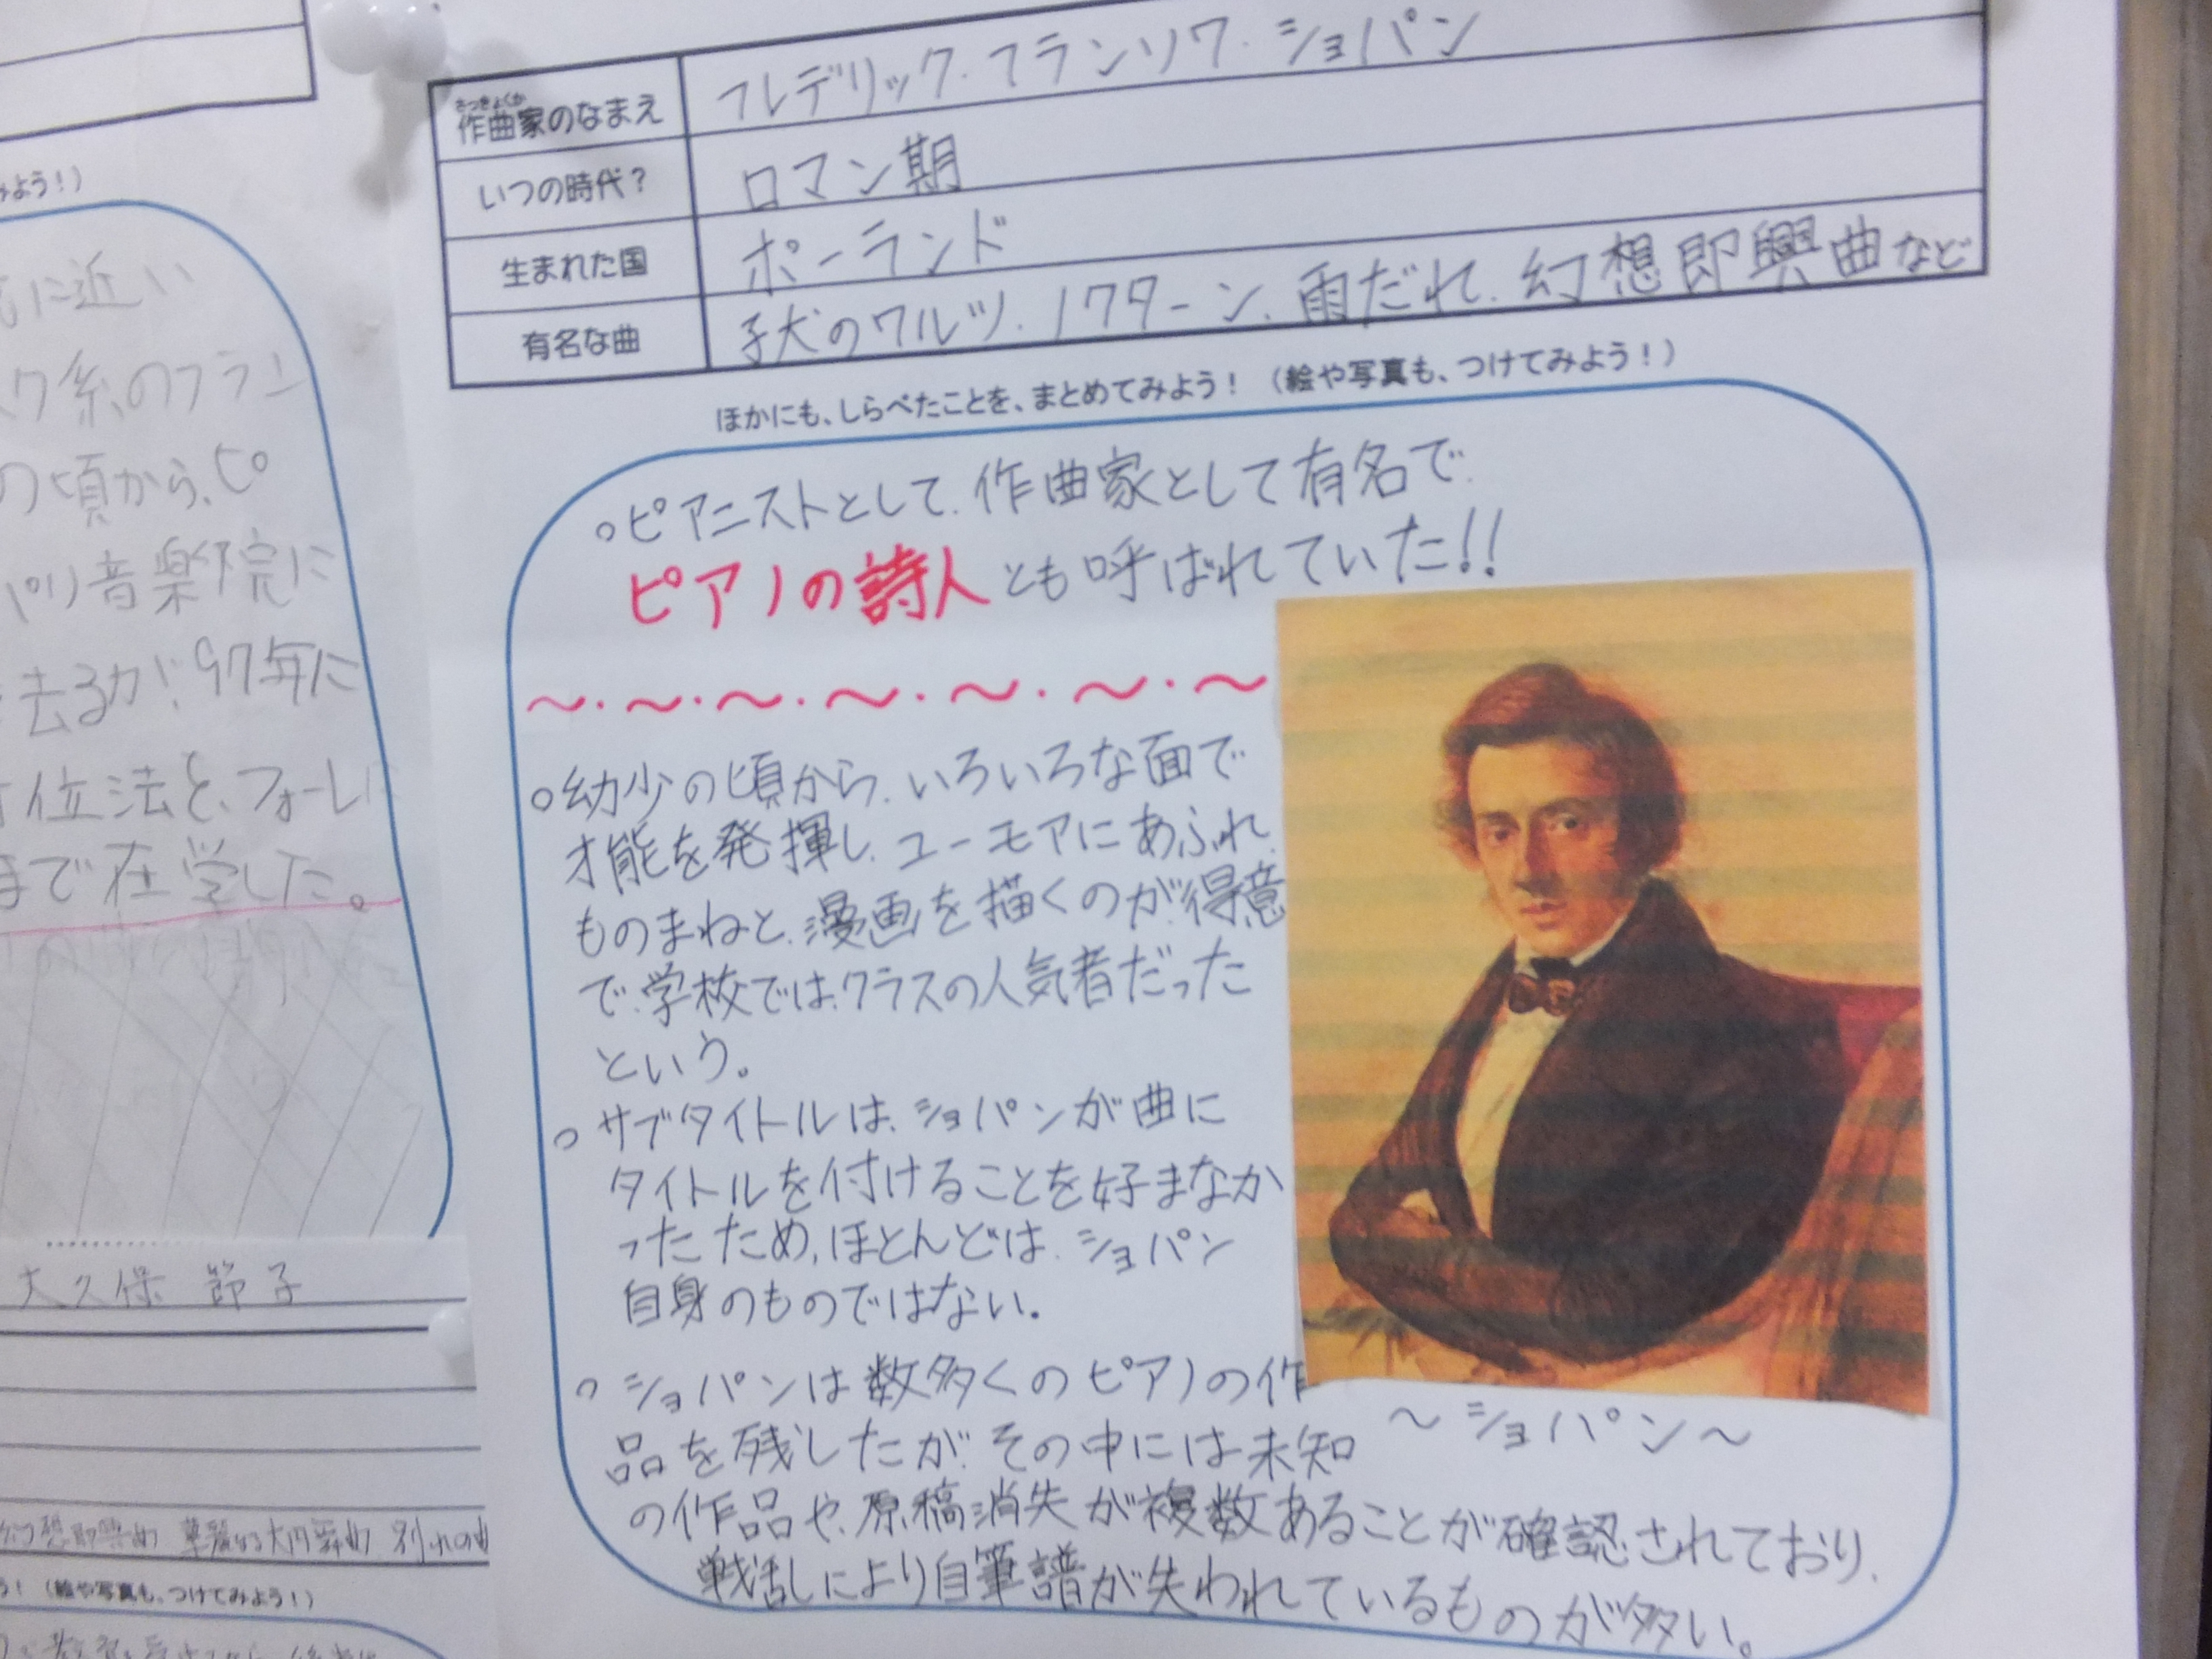 みよう!)
に近い
ク系のフラン
の頃から、ピ
パリ音楽院に
去るが、97年に
位法と、フォーレに
まで在学した。
大久保 節子
幻想即興曲 華麗なる大円舞曲 別れの曲
う! (絵や写真も、つけてみよう!)
さっきょくか
作曲家のなまえ フレデリック・フランソワ・ショパン
いつの時代? ロマン期
生まれた国 ポーランド
有名な曲 子犬のワルツ、ノクターン、雨だれ、幻想即興曲など
ほかにも、しらべたことを、まとめてみよう! (絵や写真も、つけてみよう!)
○ピアニストとして、作曲家として有名で、
ピアノの詩人とも呼ばれていた!!
〜・〜・〜・〜・〜・〜・〜
○幼少の頃から、いろいろな面で
才能を発揮し、ユーモアにあふれ、
ものまねと、漫画を描くのが、得意
で、学校では、クラスの人気者だった
という。
○サブタイトルは、ショパンが曲に
タイトルを付けることを好まなか
ったため、ほとんどは、ショパン
自身のものではない。
○ショパンは数多くのピアノの作
品を残したが、その中には未知
の作品や、原稿消失が複数あることが確認されており、
戦乱により自筆譜が失われているものが多い。
〜ショパン〜